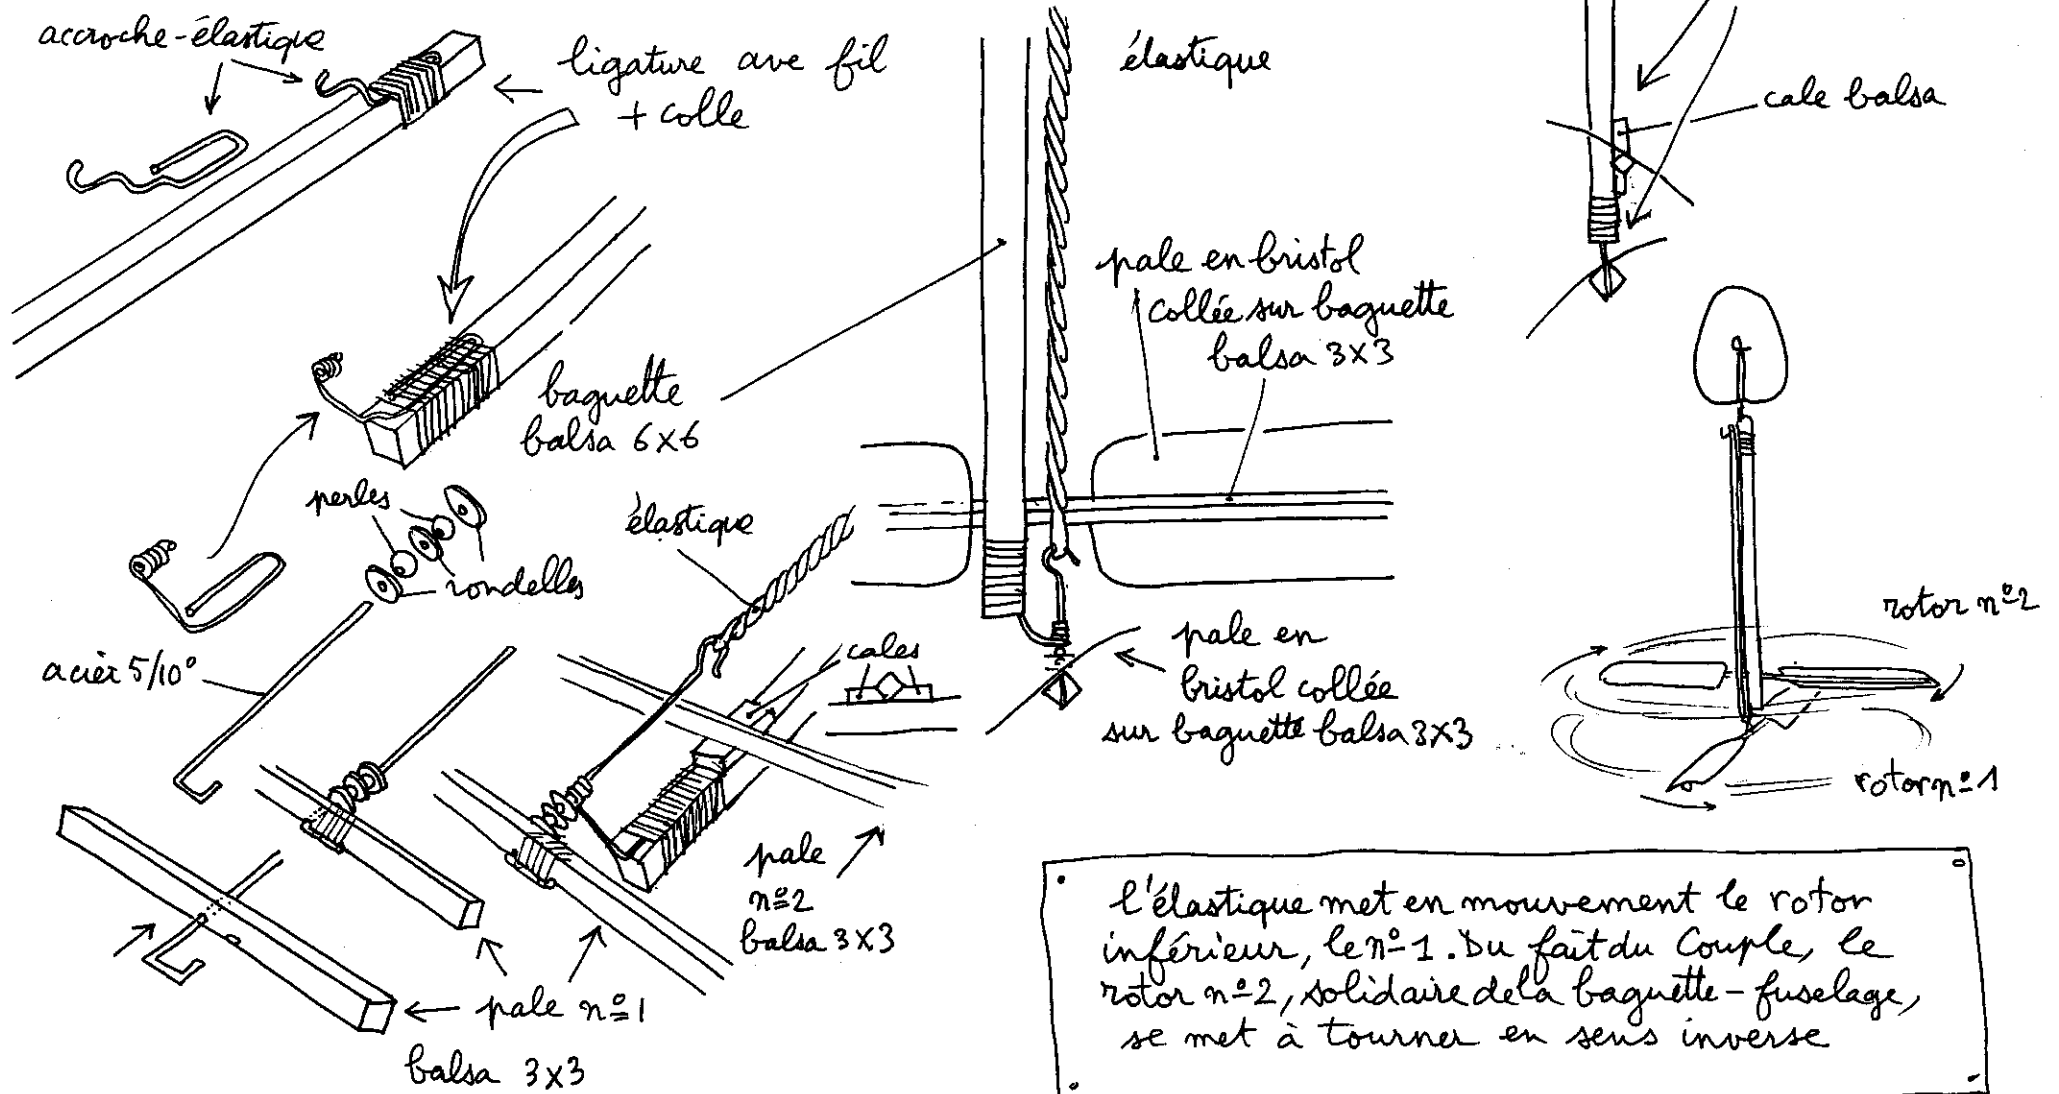 accroche-élastique
ligature ave fil
+ colle
élastique
cale balsa
pale en bristol
collée sur baguette
balsa 3x3
baguette
balsa 6x6
perles
rondelles
élastique
acier 5/10°
cales
pale en
bristol collée
sur baguette balsa 3x3
rotor nº2
rotor nº1
pale
nº2
balsa 3x3
pale nº1
balsa 3x3
l'élastique met en mouvement le rotor
inférieur, le nº1. Du fait du Couple, le
rotor nº2, solidaire de la baguette-fuselage,
se met à tourner en sens inverse